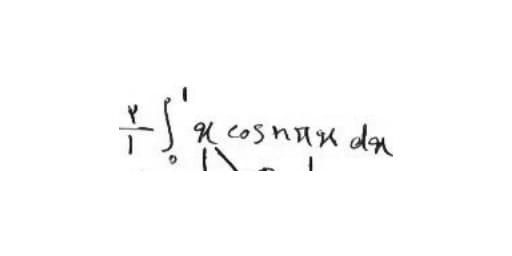 ۲/۱ ∫₀¹ x cos nπx dx